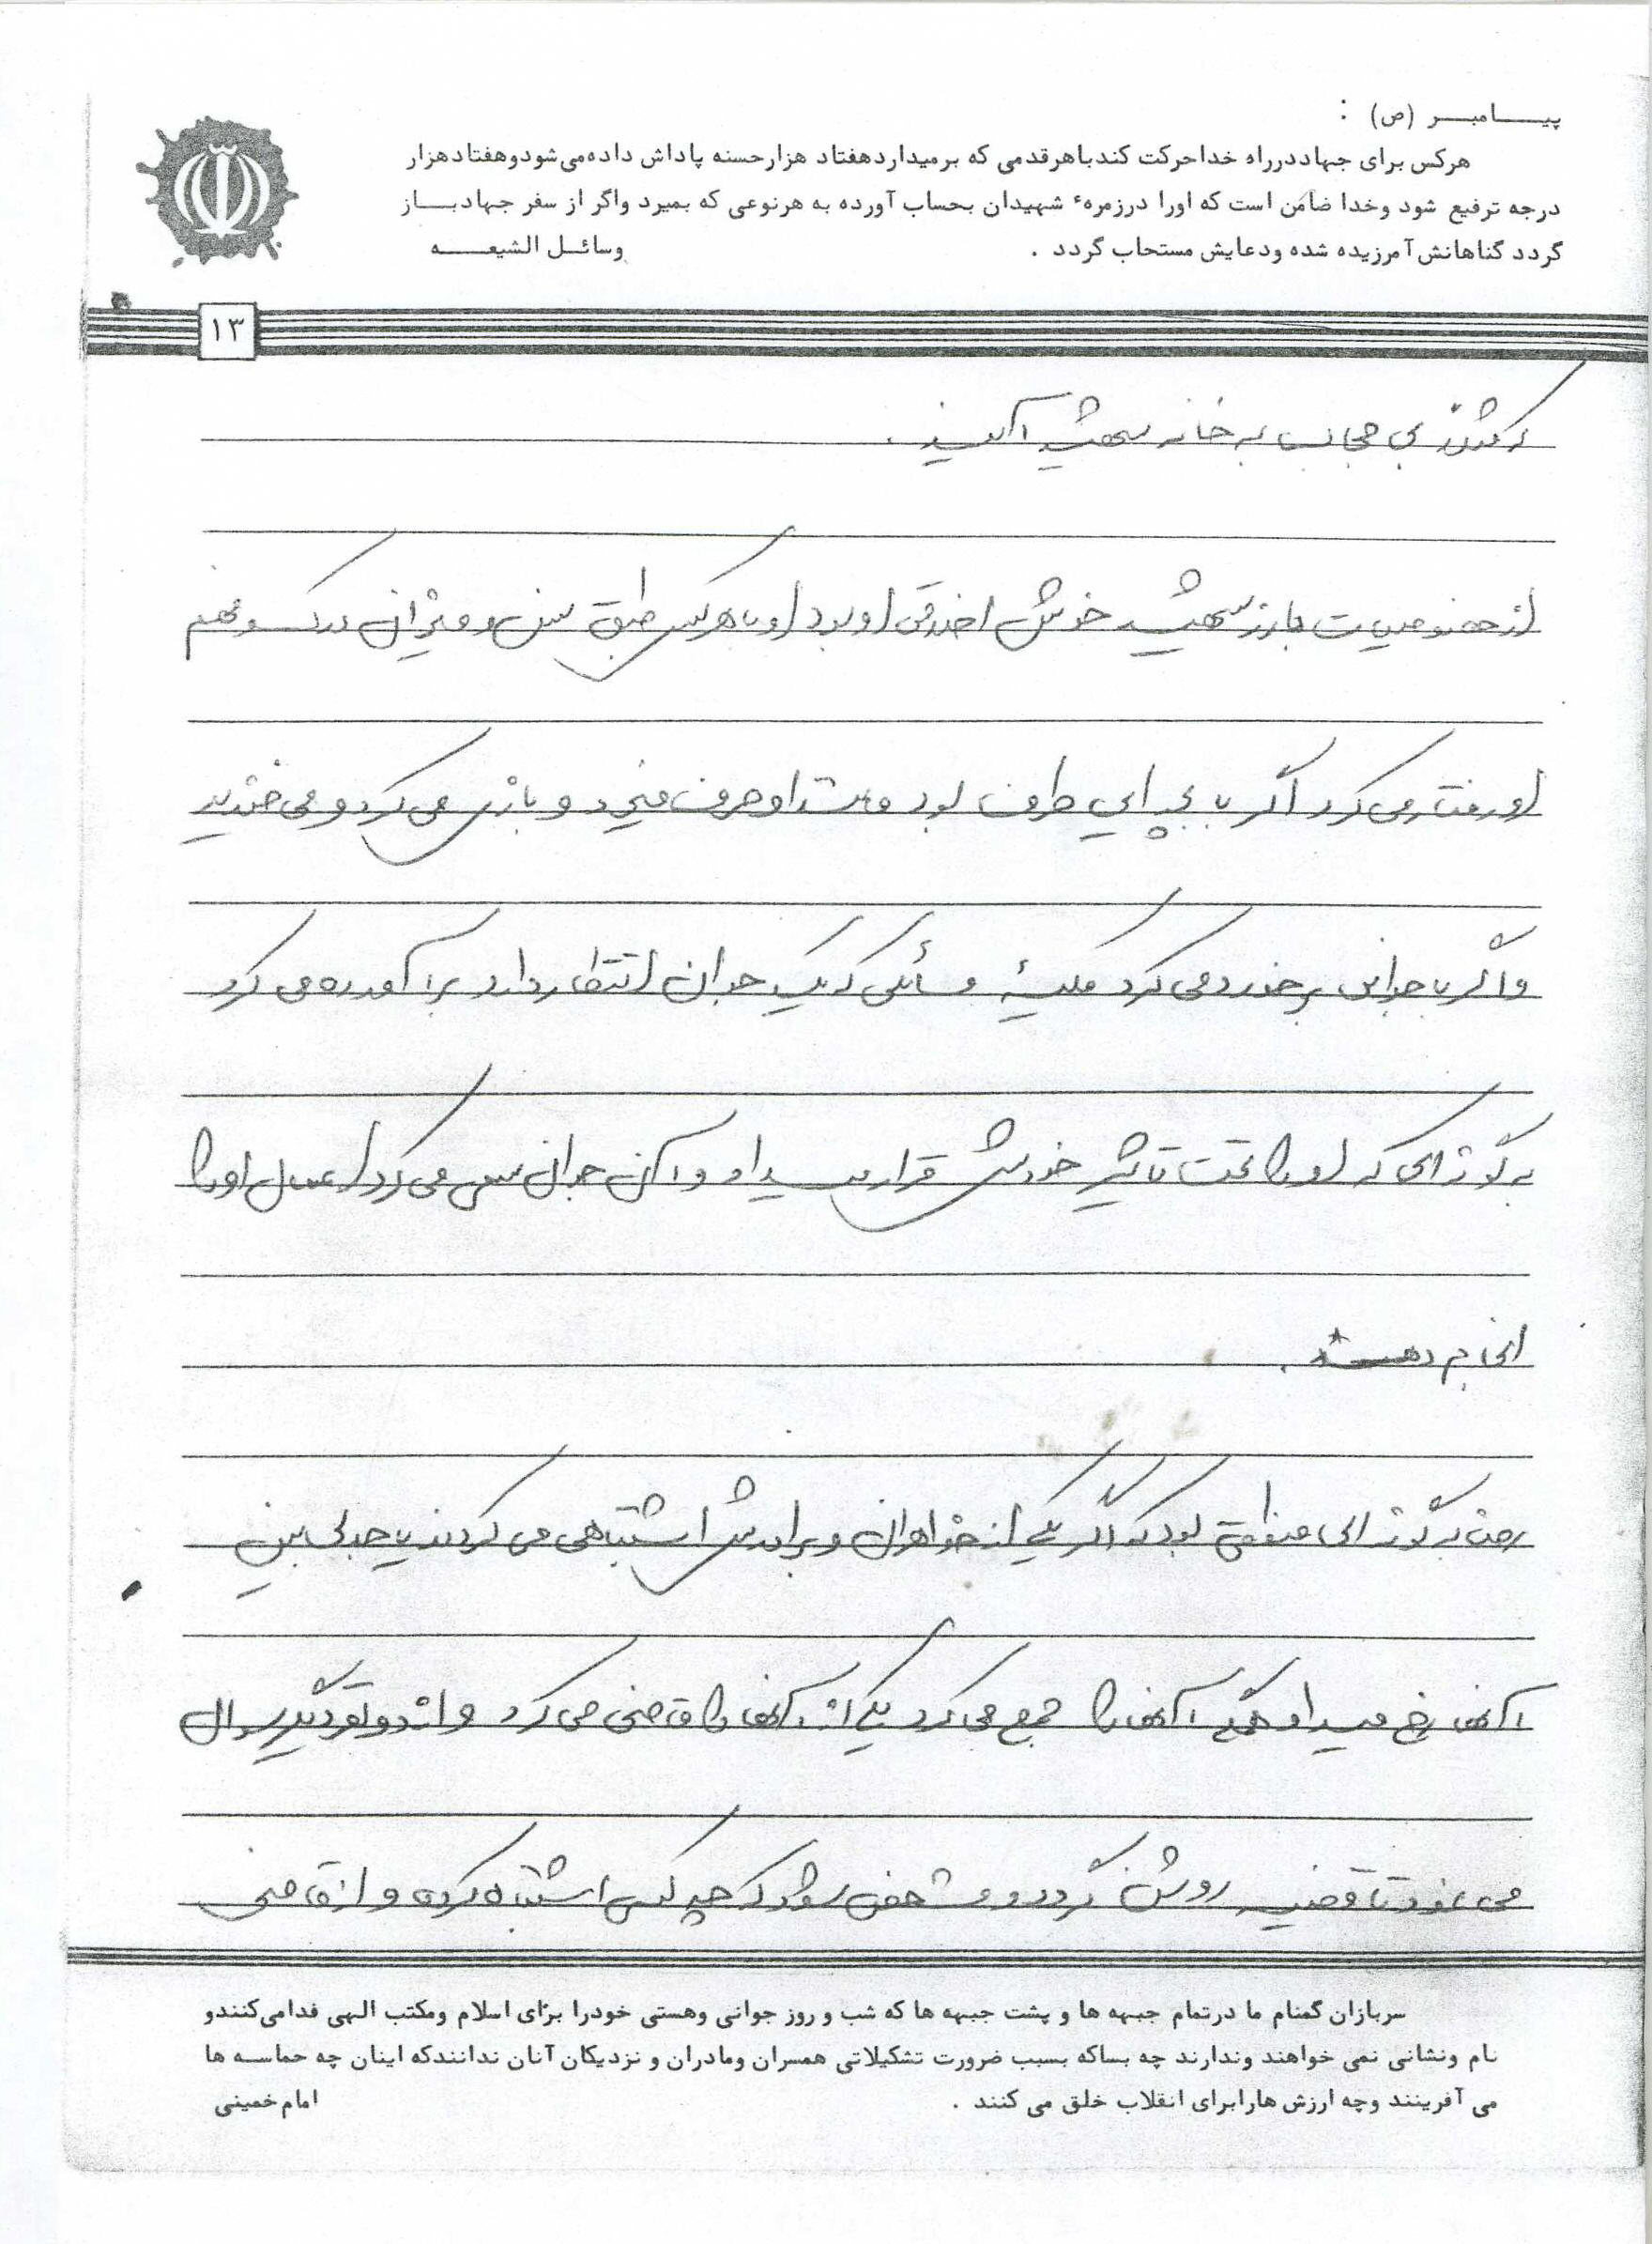 پیامبر (ص) :
هرکس برای جهاددرراه خداحرکت کندباهرقدمی که برمیداردهفتاد هزارحسنه پاداش داده‌می‌شودوهفتادهزار
درجه ترفیع شود وخدا ضامن است که اورا درزمرهٔ شهیدان بحساب آورده به هرنوعی که بمیرد واگر از سفر جهادباز
گردد گناهانش آمرزیده شده ودعایش مستحاب گردد . وسائل الشیعه
۱۳
بی حجاب به خانه شهید آیند .
از خصوصیات بارز شهید خوش اخلاقی او بود او با هرکس طبق سن و میزان درک و فهم
او رفتار می کرد اگر با بچه ایی طرف بود مثل او حرف میزد و بازی می کرد و می خندید
و اگر با جوانی برخورد می کرد کلیهٔ مسائلی که یک جوان انتظار دارد برآورده می کرد
به گونه ای که او را تحت تاثیر خودش قرار میداد و آن جوان سعی می کرد اعمال او را
انجام دهد .
به گونه ای منطقی بود که اگر یکی از خواهران و برادرش اشتباهی می کردند یا جدلی بین
آنها رخ میداد همگی آنها را جمع می کرد یکی از آنها را قاضی می کرد و از دو نفر دیگر سوال
می نمود تا قضیه روشن گردد و مشخص شود که چه کسی اشتباه کرده و از قاضی
سربازان گمنام ما درتمام جبهه ها و پشت جبهه ها که شب و روز جوانی وهستی خودرا برای اسلام ومکتب الهی فدامی‌کنندو
نام ونشانی نمی خواهند وندارند چه بساکه بسبب ضرورت تشکیلاتی همسران ومادران و نزدیکان آنان ندانندکه اینان چه حماسه ها
می آفرینند وچه ارزش هارابرای انقلاب خلق می کنند . امام خمینی